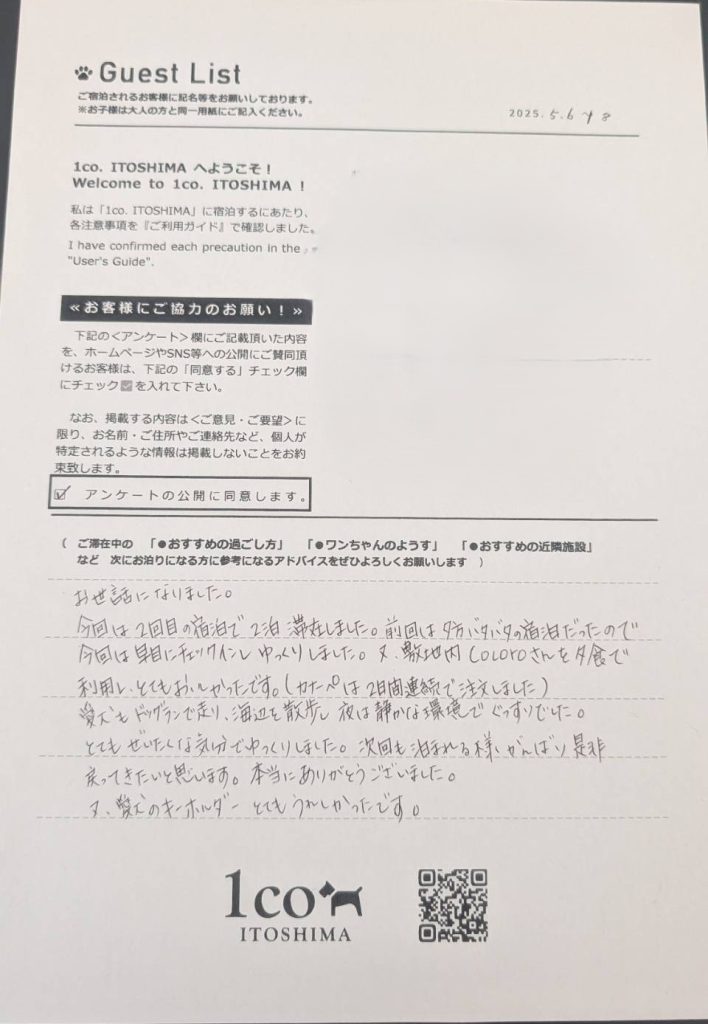 Guest List
ご宿泊されるお客様に記名等をお願いしております。
※お子様は大人の方と同一用紙にご記入ください。
2025.5.6〜8
1co. ITOSHIMA へようこそ！
Welcome to 1co. ITOSHIMA !
私は「1co. ITOSHIMA」に宿泊するにあたり、
各注意事項を『ご利用ガイド』で確認しました。
I have confirmed each precaution in the
"User's Guide".
≪お客様にご協力のお願い！≫
下記の＜アンケート＞欄にご記載頂いた内容
を、ホームページやSNS等への公開にご賛同頂
けるお客様は、下記の「同意する」チェック欄
にチェック☑を入れて下さい。
なお、掲載する内容は＜ご意見・ご要望＞に
限り、お名前・ご住所やご連絡先など、個人が
特定されるような情報は掲載しないことをお約
束致します。
☑ アンケートの公開に同意します。
（ ご滞在中の 「●おすすめの過ごし方」 「●ワンちゃんのようす」 「●おすすめの近隣施設」
など 次にお泊りになる方に参考になるアドバイスをぜひよろしくお願いします ）
お世話になりました。
今回は2回目の宿泊で2泊滞在しました。前回は夕方バタバタの宿泊だったので
今回は早目にチェックインしゆっくりしました。又、敷地内COLOROさんを夕食で
利用し、とてもおいしかったです。(カナペは2日間連続で注文しました)
愛犬もドッグランで走り、海辺を散歩し夜は静かな環境でぐっすりでした。
とてもぜいたくな気分でゆっくりしました。次回も泊まれる様、がんばり是非
戻ってきたいと思います。本当にありがとうございました。
又、愛犬のキーホルダーとてもうれしかったです。
1co
ITOSHIMA